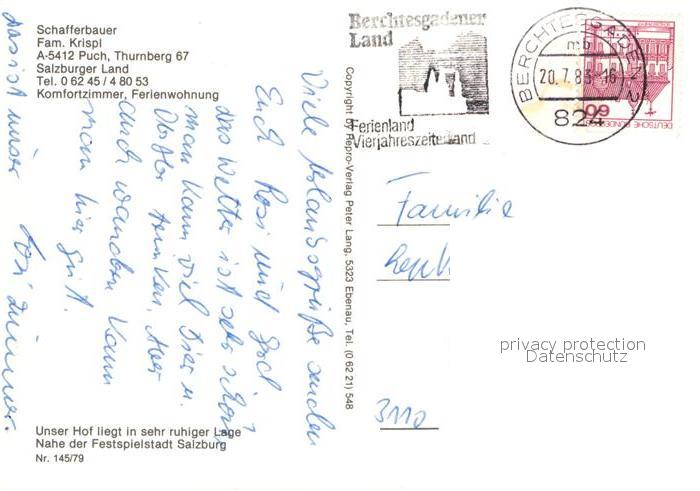 Schafferbauer
Fam. Krispl
A-5412 Puch, Thurnberg 67
Salzburger Land
Tel. 0 62 45 / 4 80 53
Komfortzimmer, Ferienwohnung
Viele Urlaubsgrüße senden
Euch Rosi und
das Wetter ist sehr schön
man kann viel Bier u.
trinken. Aber
auch wandern kann
man hier gut.
das ist unser
Unser Hof liegt in sehr ruhiger Lage
Nahe der Festspielstadt Salzburg
Nr. 145/79
Copyright by Repro-Verlag Peter Lang, 5323 Ebenau, Tel. (0 62 21) 548
Berchtesgadener
Land
Ferienland
Vierjahreszeitenland
BERCHTESGADEN 2
mb
20.7.83-16
824
60
DEUTSCHE BUNDESPOST
Familie
3110
privacy protection
Datenschutz